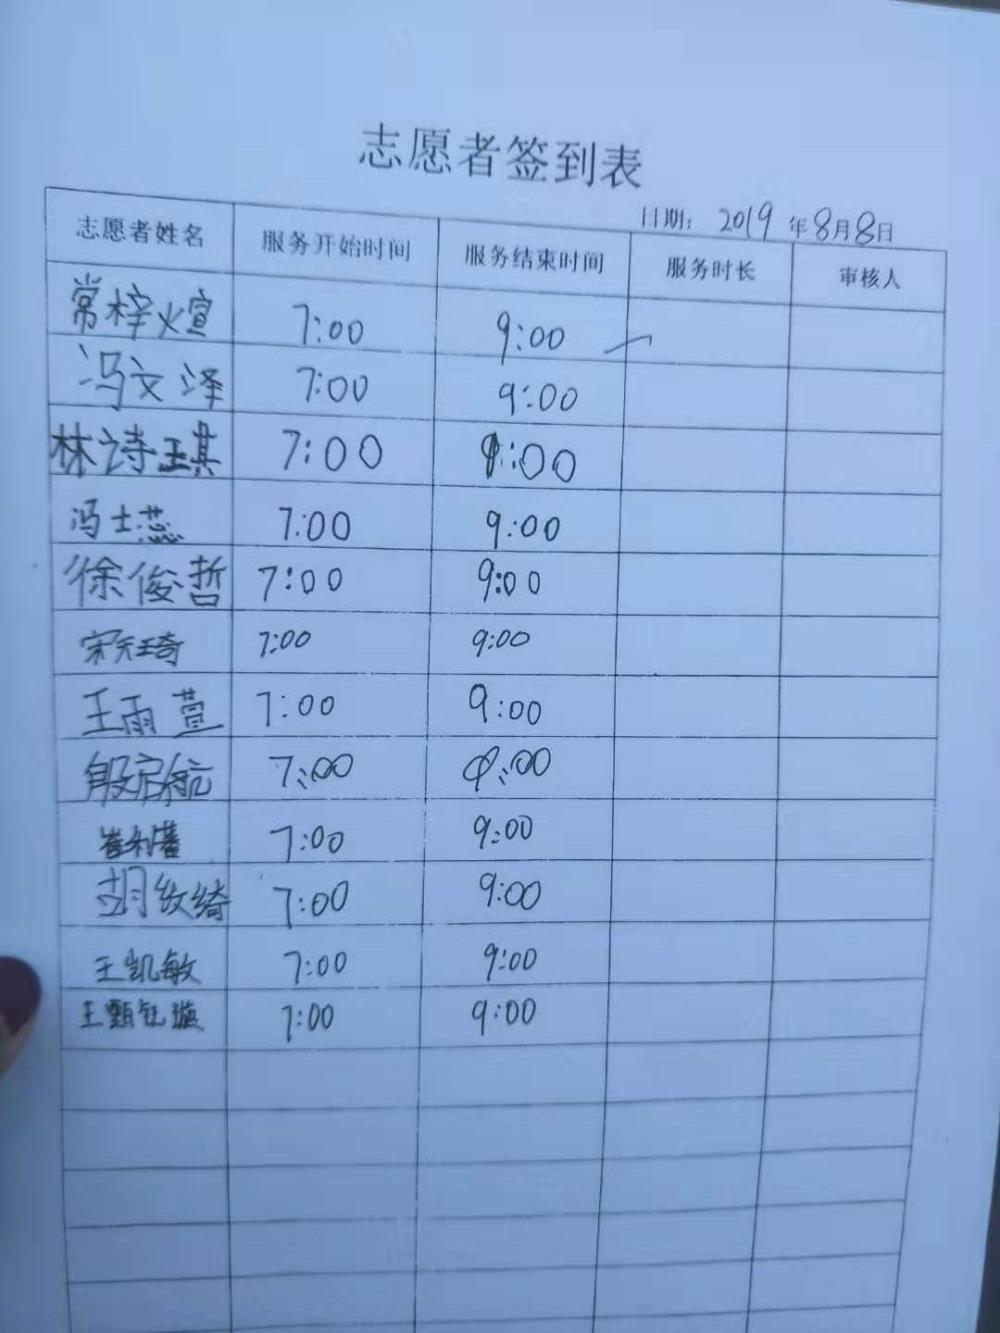 志愿者签到表
日期: 2019年8月8日
志愿者姓名 服务开始时间 服务结束时间 服务时长 审核人
常梓煊 7:00 9:00
冯文泽 7:00 9:00
林诗琪 7:00 9:00
冯士蕊 7:00 9:00
徐俊哲 7:00 9:00
宋天琦 7:00 9:00
王雨萱 7:00 9:00
殷启航 7:00 9:00
7:00 9:00
胡纹绮 7:00 9:00
王凯敏 7:00 9:00
王甄钰璇 7:00 9:00